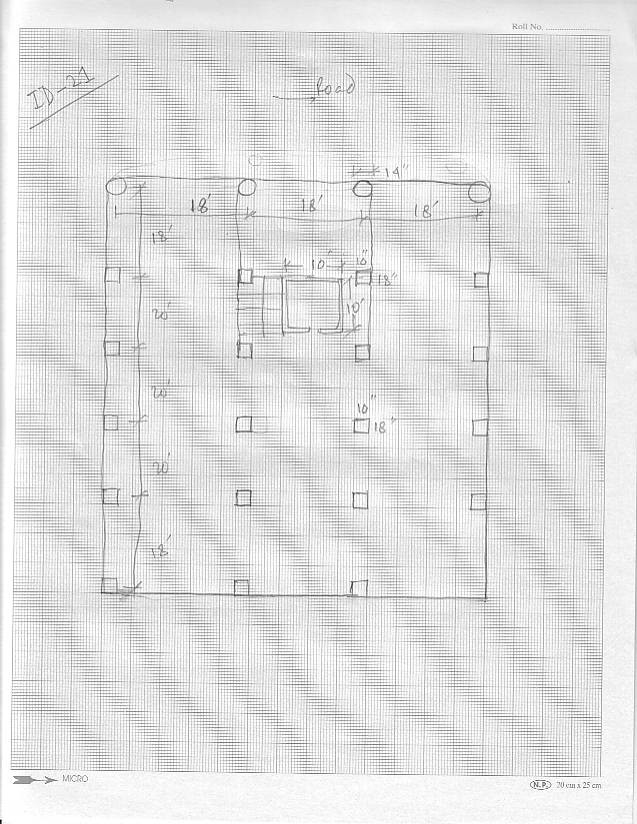 Roll No.
ID-21
Road
14"
18' 18' 18'
18'
10' 10"
18"
20' 10'
20'
10"
18"
20'
18'
MICRO
N.P. 20 cm x 25 cm